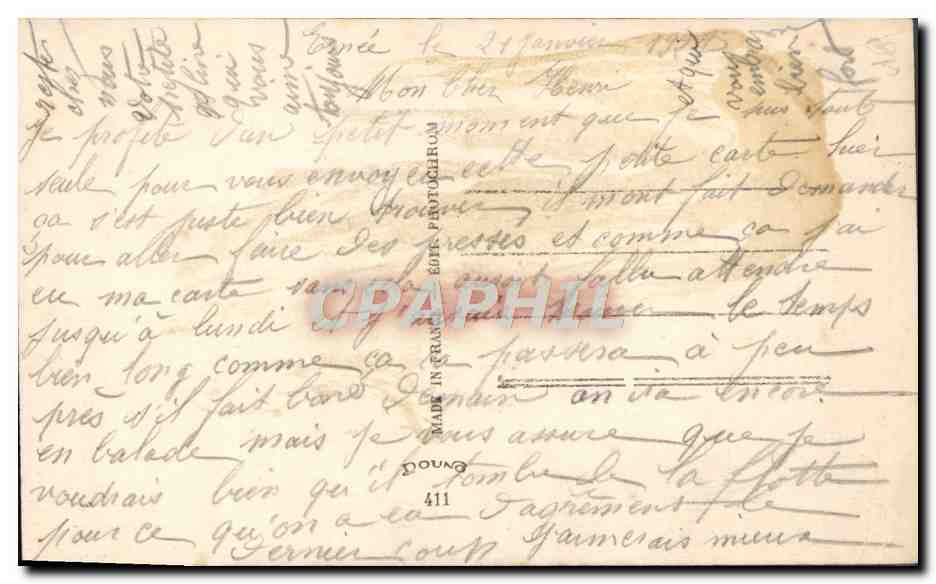 Ernée le 21 Janvier
Mon Cher Henri
Je profite d'un petit moment que je suis tout
seule pour vous envoyer cette petite carte hier
ça s'est juste bien trouver il mont fait demander
pour aller faire des pressés et comme ça j'ai
eu ma carte sans ça aurait fallu attendre
jusqu'à lundi et j'aurais trouver le temps
bien long comme ça sa passera à peu
près s'il fait bond demain on ira encor
en balade mais je vous assure que je
voudrais bien qu'il tombe de la flotte
pour ce qu'on a eu d'agrément le
dernier coup J'aimerais mieux
rester
chez
vous
votre
petite
qui
vous
aime
toujours
et qui
vous
embrasse
bien
fort
MADE IN FRANCE EDIT. PHOTOCHROM
411
CPAPHIL